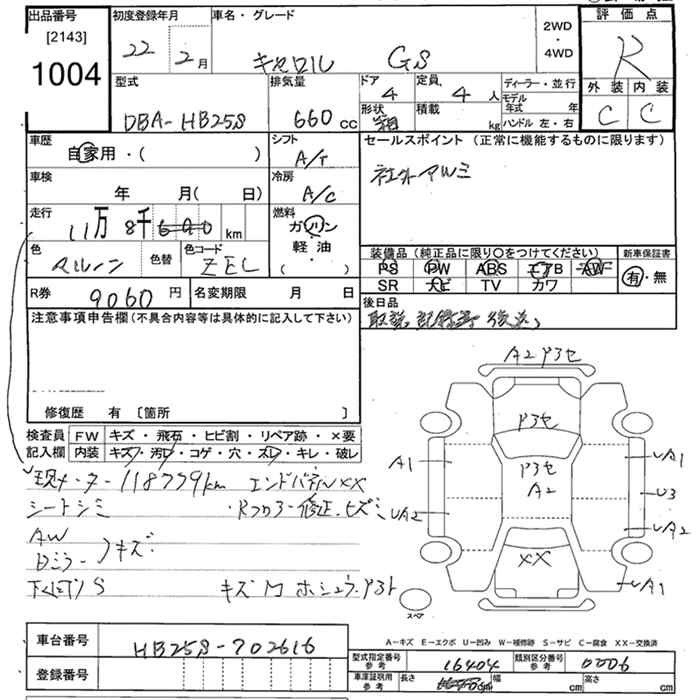 出品番号
[2143]
1004
初度登録年月
22 2月
車名・グレード
キャロル GS
2WD
・
4WD
評価点
R
外装 内装
C C
型式
DBA-HB25S
排気量
660 cc
ドア
4
定員
4 人
ディーラー・並行
モデル年式 年
ハンドル 左・右
形状
箱
積載
kg
車歴
自家用・( )
シフト
A/T
セールスポイント (正常に機能するものに限ります)
社外アルミ
車検
年 月( 日)
冷房
A/C
走行
11万8千 km
燃料
ガソリン
軽油
( ・ )
色
マルーン
色替
色コード
ZEL
装備品 (純正品に限り○をつけてください)
PS PW ABS エアB AW
SR ナビ TV カワ
新車保証書
有・無
R券
9060円
名変期限 月 日
後日品
取説 記録簿 後送
注意事項申告欄 (不具合内容等は具体的に記入して下さい)
修復歴 有 [箇所 ]
検査員記入欄
FW キズ・飛石・ヒビ割・リペア跡・×要
内装 キズ・汚レ・コゲ・穴・スレ・キレ・破レ
現メーター 118779km エンドパネルXX
シートシミ ・Rフロアー修正、ヒズミ
AW
Dミラー キズ
下ハ S キズ M ホシュウアト
A2 アタセ
アタセ
アタセ
A2
XX
A1
UA2
UA1
U3
UA2
UA1
スペア
A-キズ E-エクボ U-凹み W-補修跡 S-サビ C-腐食 XX-交換済
車台番号
HB25S-702616
登録番号
型式指定番号 参考
16404
類別区分番号 参考
0006
車庫証明用 参考
長さ cm 幅 cm 高さ cm